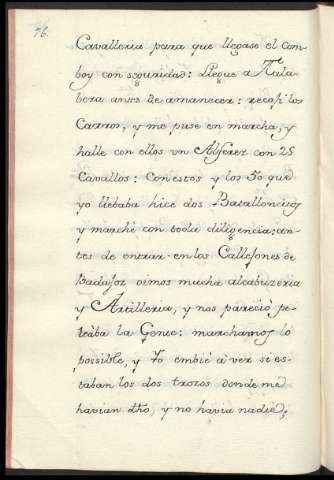 76.
Cavalleria para que llegase el Com-
boy con seguridad: Llegue a Tala-
bera antes de amanecer: recoji los
Carros, y me puse en marcha, y
halle con ellos un Alferez con 25
Cavallos: Con estos y los 50 que
yo llebaba hice dos Batallonci​os
y marchè con toda diligencia: an-
tes de entrar en los Callejones de
Badajoz oimos mucha alcabuzeria
y Artilleria, y nos pareciò pe-
leàba la Gente: marchamos lo
possible, y Yo embiè à ver si es-
taban los dos trozos donde me
havian dho, y no havia nadie;